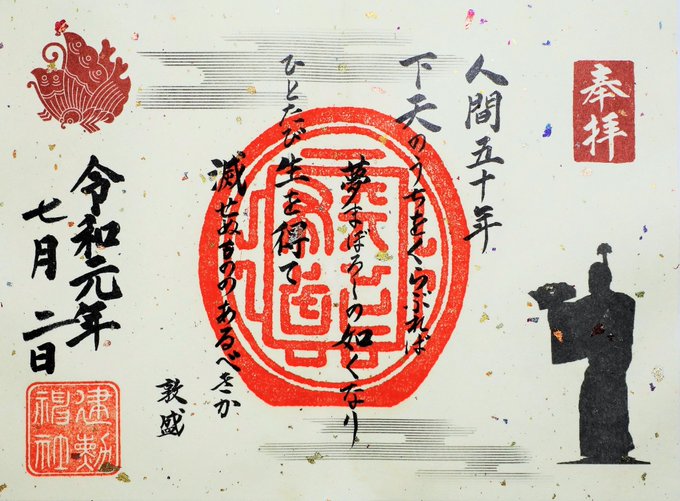 奉拝
人間五十年
下天のうちをくらぶれば
夢まぼろしの如くなり
ひとたび生を得て
滅せぬもののあるべきか
敦盛
令和元年
七月二日
建勲
神社